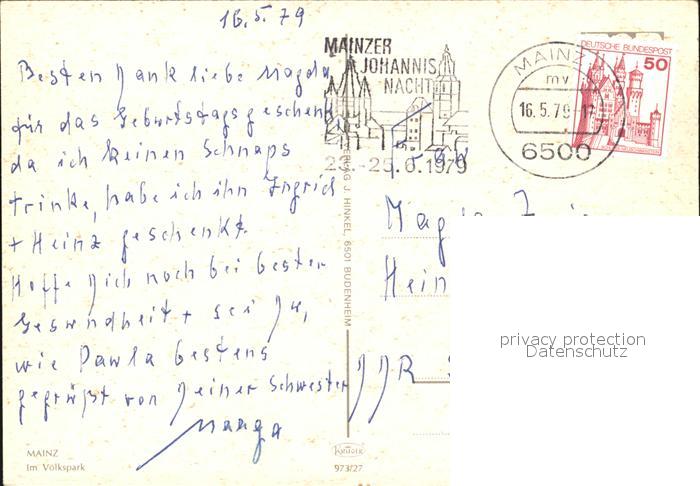 16.5.79
Besten Dank liebe Magda
für das Geburtstagsgeschenk
da ich keinen Schnaps
trinke, habe ich ihn Ingrid
+ Heinz geschenkt.
Hoffe Dich noch bei bester
Gesundheit + sei Du,
wie Pawla bestens
gegrüßt von Deiner Schwester
MAINZ
Im Volkspark
MAINZER
JOHANNIS
NACHT
23.-25.6.1979
VERLAG J. HINKEL, 6501 BUDENHEIM
973/27
DEUTSCHE BUNDESPOST
50
MAINZ
mv
16.5.79
6500
Hein
DDR
privacy protection
Datenschutz